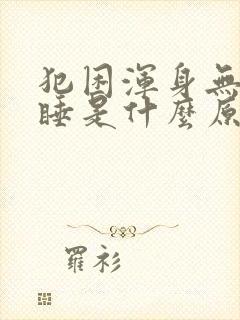 犯困渾身無
睡是什麼原
羅衫